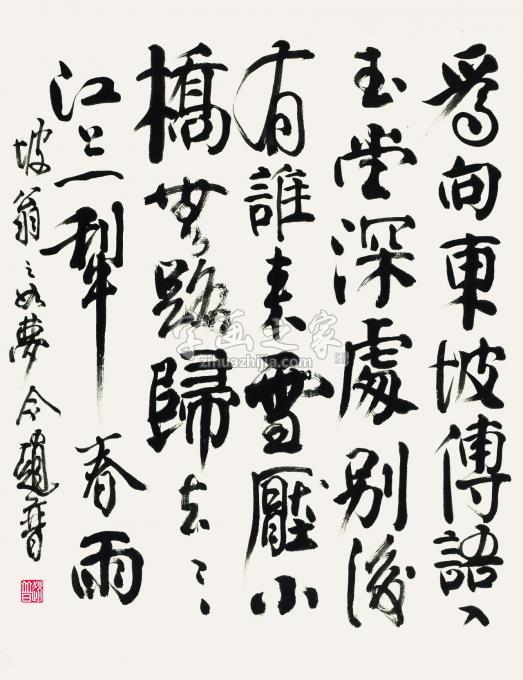 為向東坡傳語人
玉堂深處别後
有誰来雪壓小
橋無路歸去〻〻
江上一犁春雨
坡翁之如夢令
字画之家
zihuazhijia.com